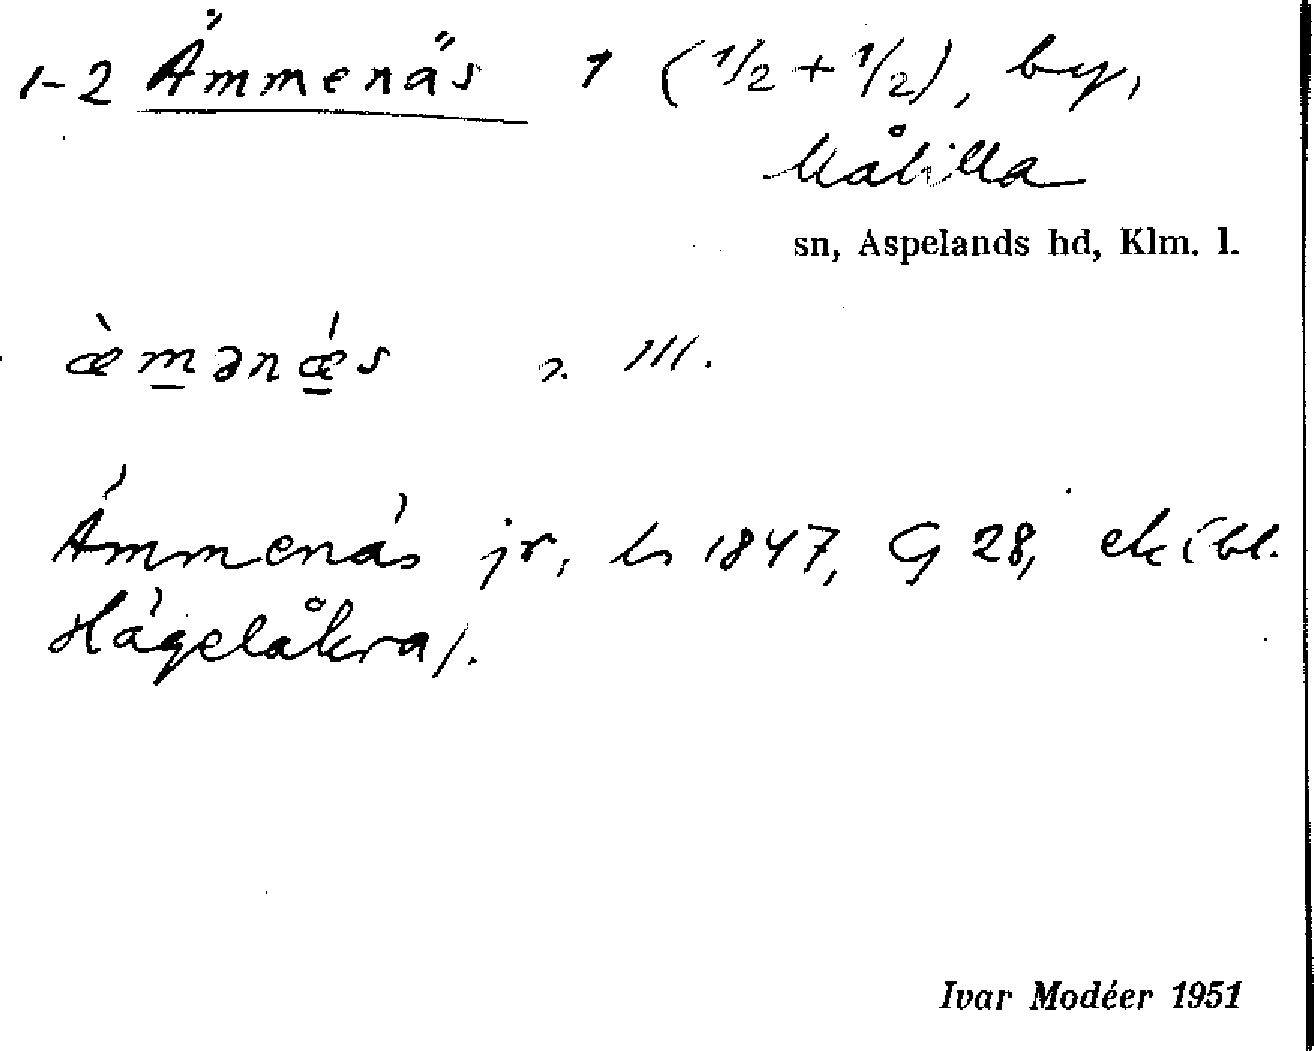 1-2 Ämmenäs 1 (1/2 + 1/2), by,
Målilla
sn, Aspelands hd, Klm. l.
æ̀m̲ənǽ̲s
Ämmenäs jr, ls 1847, G 28, ek (bl.
Hägelåkra).
Ivar Modéer 1951